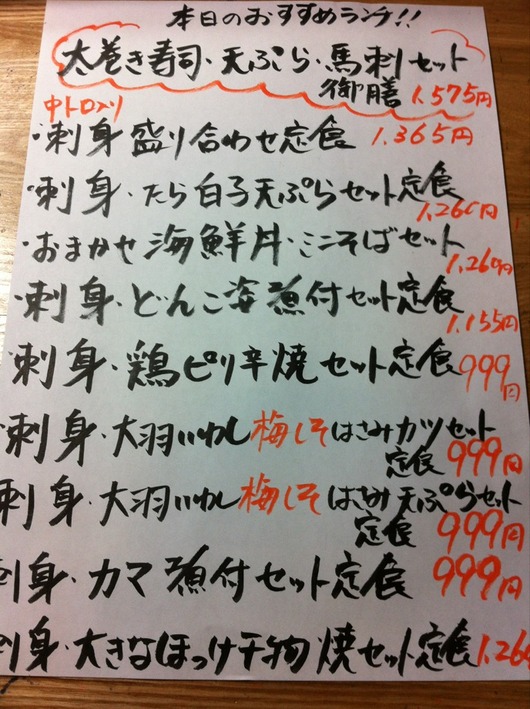 本日のおすすめランチ!!
太巻き寿司・天ぷら・馬刺セット
御膳 1.575円
中トロ入り
・刺身盛り合わせ定食 1.365円
・刺身・たら白子天ぷらセット定食
1.260円
・おまかせ海鮮丼・ミニそばセット
1.260円
・刺身・どんこ姿煮付セット定食
1.155円
・刺身・鶏ピリ辛焼セット定食 999円
・刺身・大羽いわし梅しそはさみカツセット
定食 999円
刺身・大羽いわし梅しそはさみ天ぷらセット
定食 999円
刺身・カマ煮付セット定食 999円
刺身・大きなほっけ干物焼セット定食 1.260